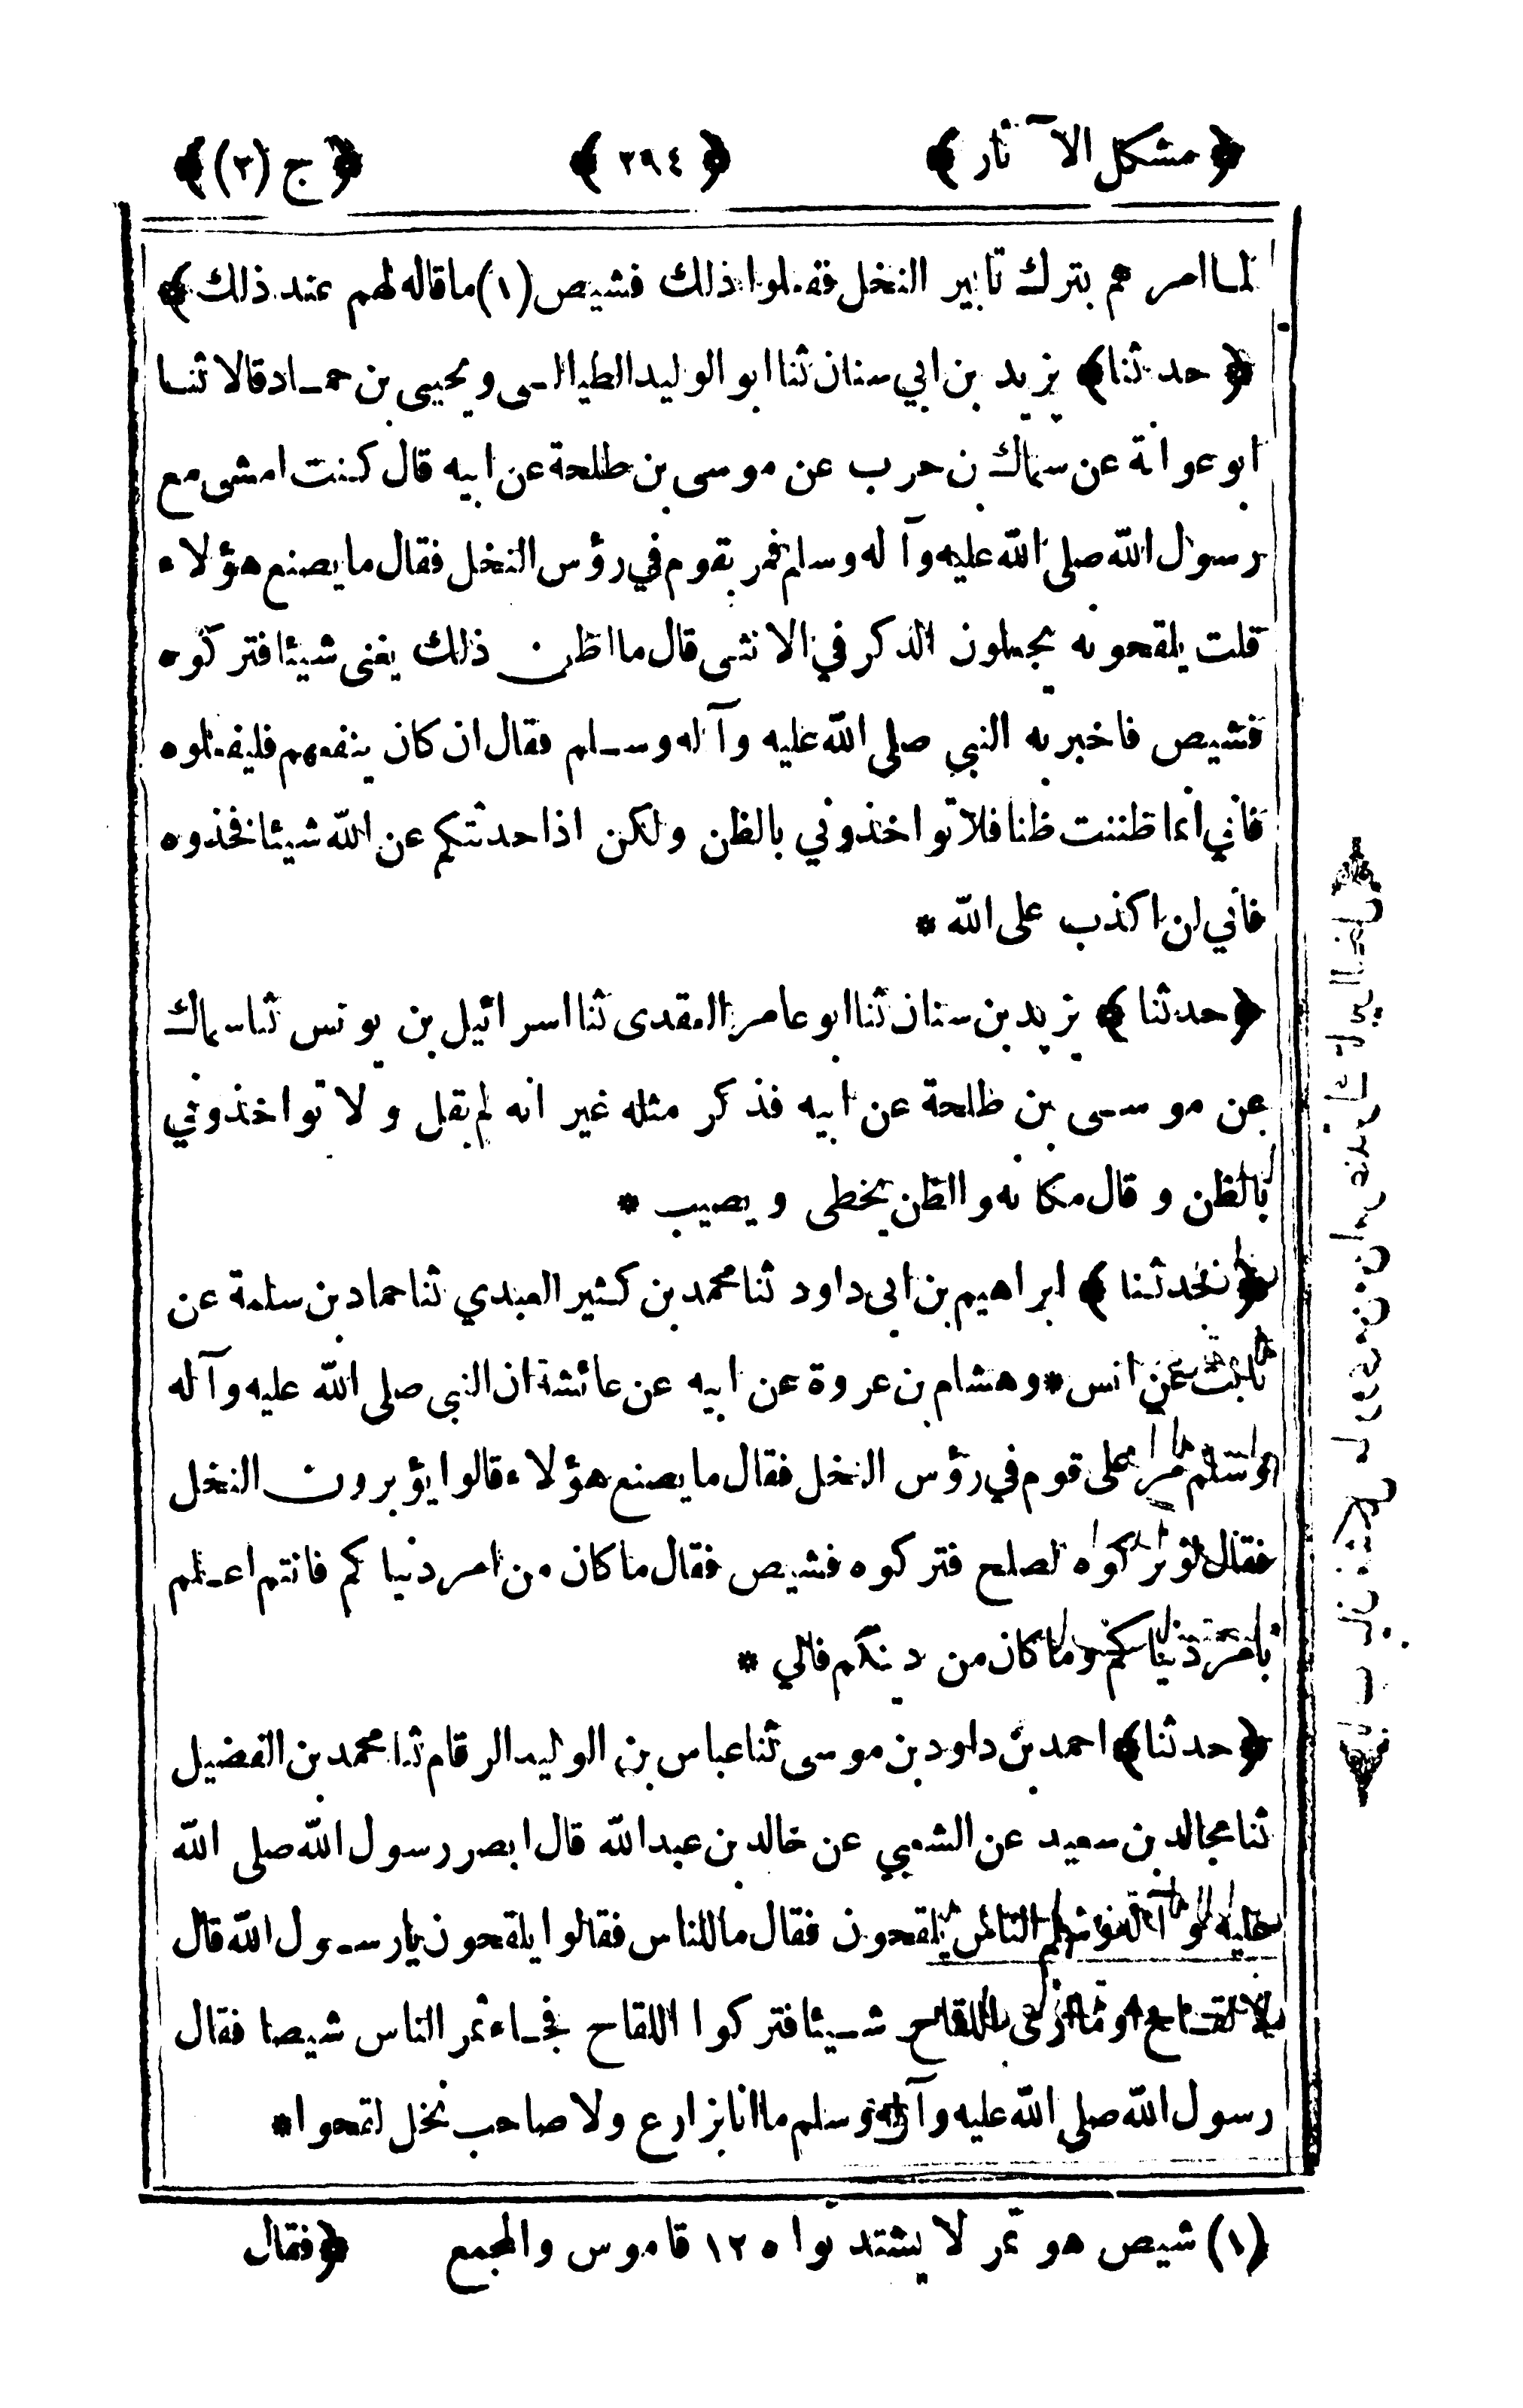 ﴿مشكل الآثار﴾ ﴿٢٩٤﴾ ﴿ج (٣)﴾
لما امر هم بترك تابير النخل ففعلوا ذلك فشيص (١) ما قاله لهم عند ذلك﴾
﴿حدثنا﴾ يزيد بن ابي سنان ثنا ابو الوليد الطيالسى ويحيى بن حماد قالا ثنا
ابو عوانة عن سماك بن حرب عن موسى بن طلحة عن ابيه قال كنت امشى مع
رسول الله صلى الله عليه وآله وسلم فمر بقوم في رؤس النخل فقال ما يصنع هؤلاء
قلت يلقحونه يجعلون الذكر في الانثى قال ما اظن ذلك يغنى شيئا فتركوه
فشيص فاخبر به النبي صلى الله عليه وآله وسلم فقال ان كان ينفعهم فليفعلوه
فاني انما ظننت ظنا فلا تواخذوني بالظن ولكن اذا حدثتكم عن الله شيئا فخذوه
فاني لن اكذب على الله *
﴿حدثنا﴾ يزيد بن سنان ثنا ابو عامر العقدى ثنا اسرائيل بن يونس ثنا سماك
عن موسى بن طلحة عن ابيه فذكر مثله غير انه لم يقل ولا تواخذوني
بالظن وقال مكانه والظن يخطى ويصيب *
﴿حدثنا﴾ ابراهيم بن ابى داود ثنا محمد بن كثير العبدي ثنا حماد بن سلمة عن
ثابت عن انس * وهشام بن عروة عن ابيه عن عائشة ان النبي صلى الله عليه وآله
وسلم مر على قوم في رؤس النخل فقال ما يصنع هؤلاء قالوا يؤبرون النخل
فقال لو تركوه لصلح فتركوه فشيص فقال ما كان من امر دنيا كم فانتم اعلم
بامر دنيا كم وما كان من دينكم فالي *
﴿حدثنا﴾ احمد بن داود بن موسى ثنا عباس بن الوليد الرقام ثنا محمد بن الفضيل
ثنا مجالد بن سعيد عن الشعبي عن خالد بن عبد الله قال ابصر رسول الله صلى الله
عليه وآله وسلم الناس يلقحون فقال ما للناس فقالوا يلقحون يارسول الله قال
لا لقاح او ما ارى اللقاح شيئا فتركوا اللقاح فجاء ثمر الناس شيصا فقال
رسول الله صلى الله عليه وآله وسلم ما انا بزارع ولا صاحب نخل لقحوا *
(١) شيص هو تمر لا يشتد نواه ١٢ قاموس والمجمع ﴿فقال